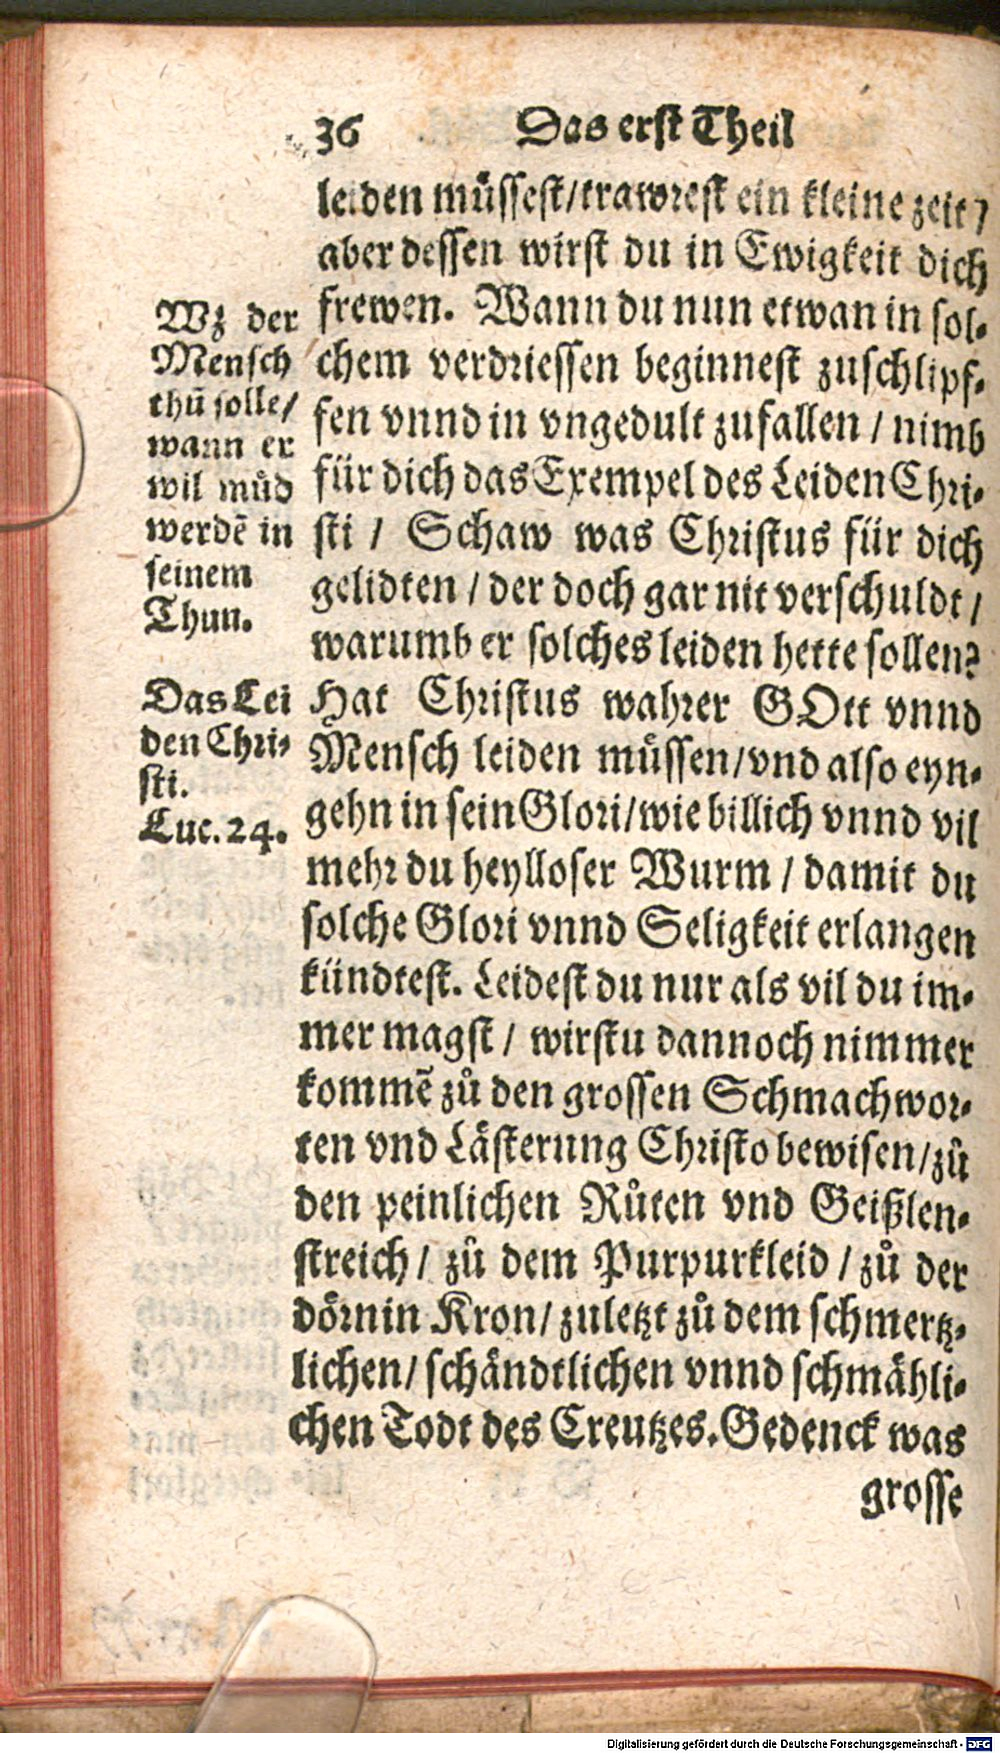 36 Das erst Theil
leiden müssest/trawrest ein kleine zeit/
aber dessen wirst du in Ewigkeit dich
frewen. Wann du nun etwan in sol-
chem verdriessen beginnest zuschlipf-
fen vnnd in vngedult zufallen / nimb
für dich das Exempel des Leiden Chri-
sti / Schaw was Christus für dich
gelidten / der doch gar nit verschuldt /
warumb er solches leiden hette sollen?
Hat Christus wahrer GOtt vnnd
Mensch leiden müssen/vnd also eyn-
gehn in sein Glori/wie billich vnnd vil
mehr du heylloser Wurm / damit du
solche Glori vnnd Seligkeit erlangen
kündtest. Leidest du nur als vil du im-
mer magst / wirstu dannoch nimmer
kommẽ zů den grossen Schmachwor-
ten vnd Lästerung Christo bewisen/zů
den peinlichen Růten vnd Geißlen-
streich / zů dem Purpurkleid / zů der
dörnin Kron/zuletzt zů dem schmertz-
lichen/schändtlichen vnnd schmähli-
chen Todt des Creutzes. Gedenck was
grosse
Wz der
Mensch
thũ solle/
wann er
wil můd
werdẽ in
seinem
Thun.
Das Lei
den Chri-
sti.
Luc. 24.
Digitalisierung gefördert durch die Deutsche Forschungsgemeinschaft - DFG